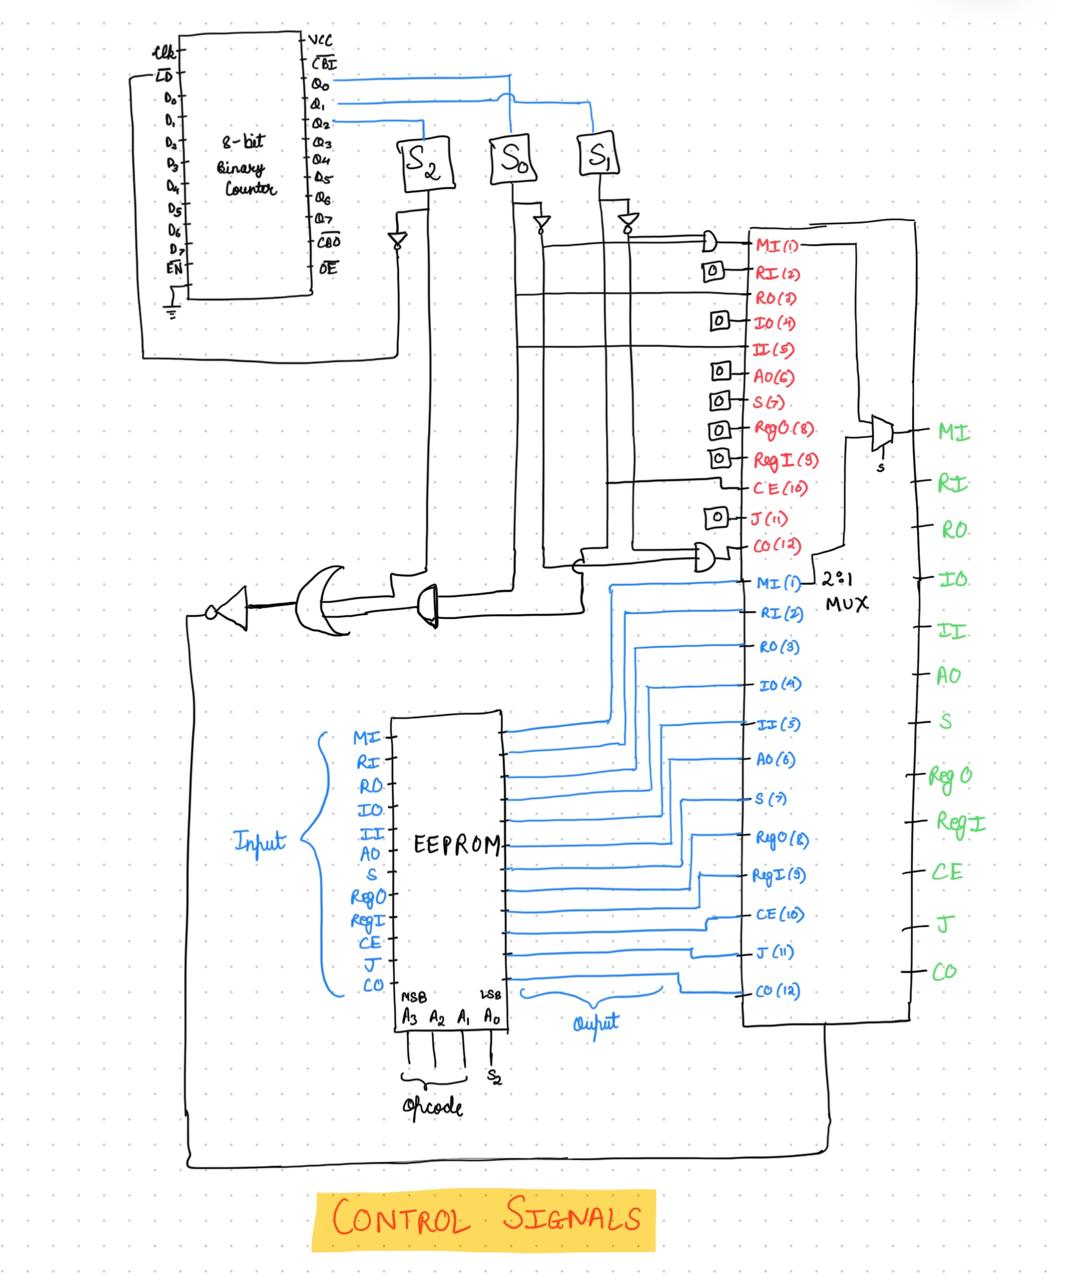 Clk
LD
D0
D1
D2
D3
D4
D5
D6
D7
EN
8-bit
Binary
Counter
VCC
CBI
Q0
Q1
Q2
Q3
Q4
Q6
Q7
CBO
OE
S2
S0
S1
MI(1)
0 RI(2)
RO(3)
0 IO(4)
II(5)
0 AO(6)
0 S(7)
0 RegO(8)
0 RegI(9)
CE(10)
0 J(11)
CO(12)
MI(1)
RI(2)
RO(3)
IO(4)
II(5)
AO(6)
S(7)
RegO(8)
RegI(9)
CE(10)
J(11)
CO(12)
2:1
MUX
s
MI
RI
RO
IO
II
AO
S
RegO
RegI
CE
J
CO
Input
MI
RI
RO
IO
II
AO
S
RegO
RegI
CE
J
CO
EEPROM
MSB LSB
A3 A2 A1 A0
Opcode
S2
Ouput
CONTROL SIGNALS